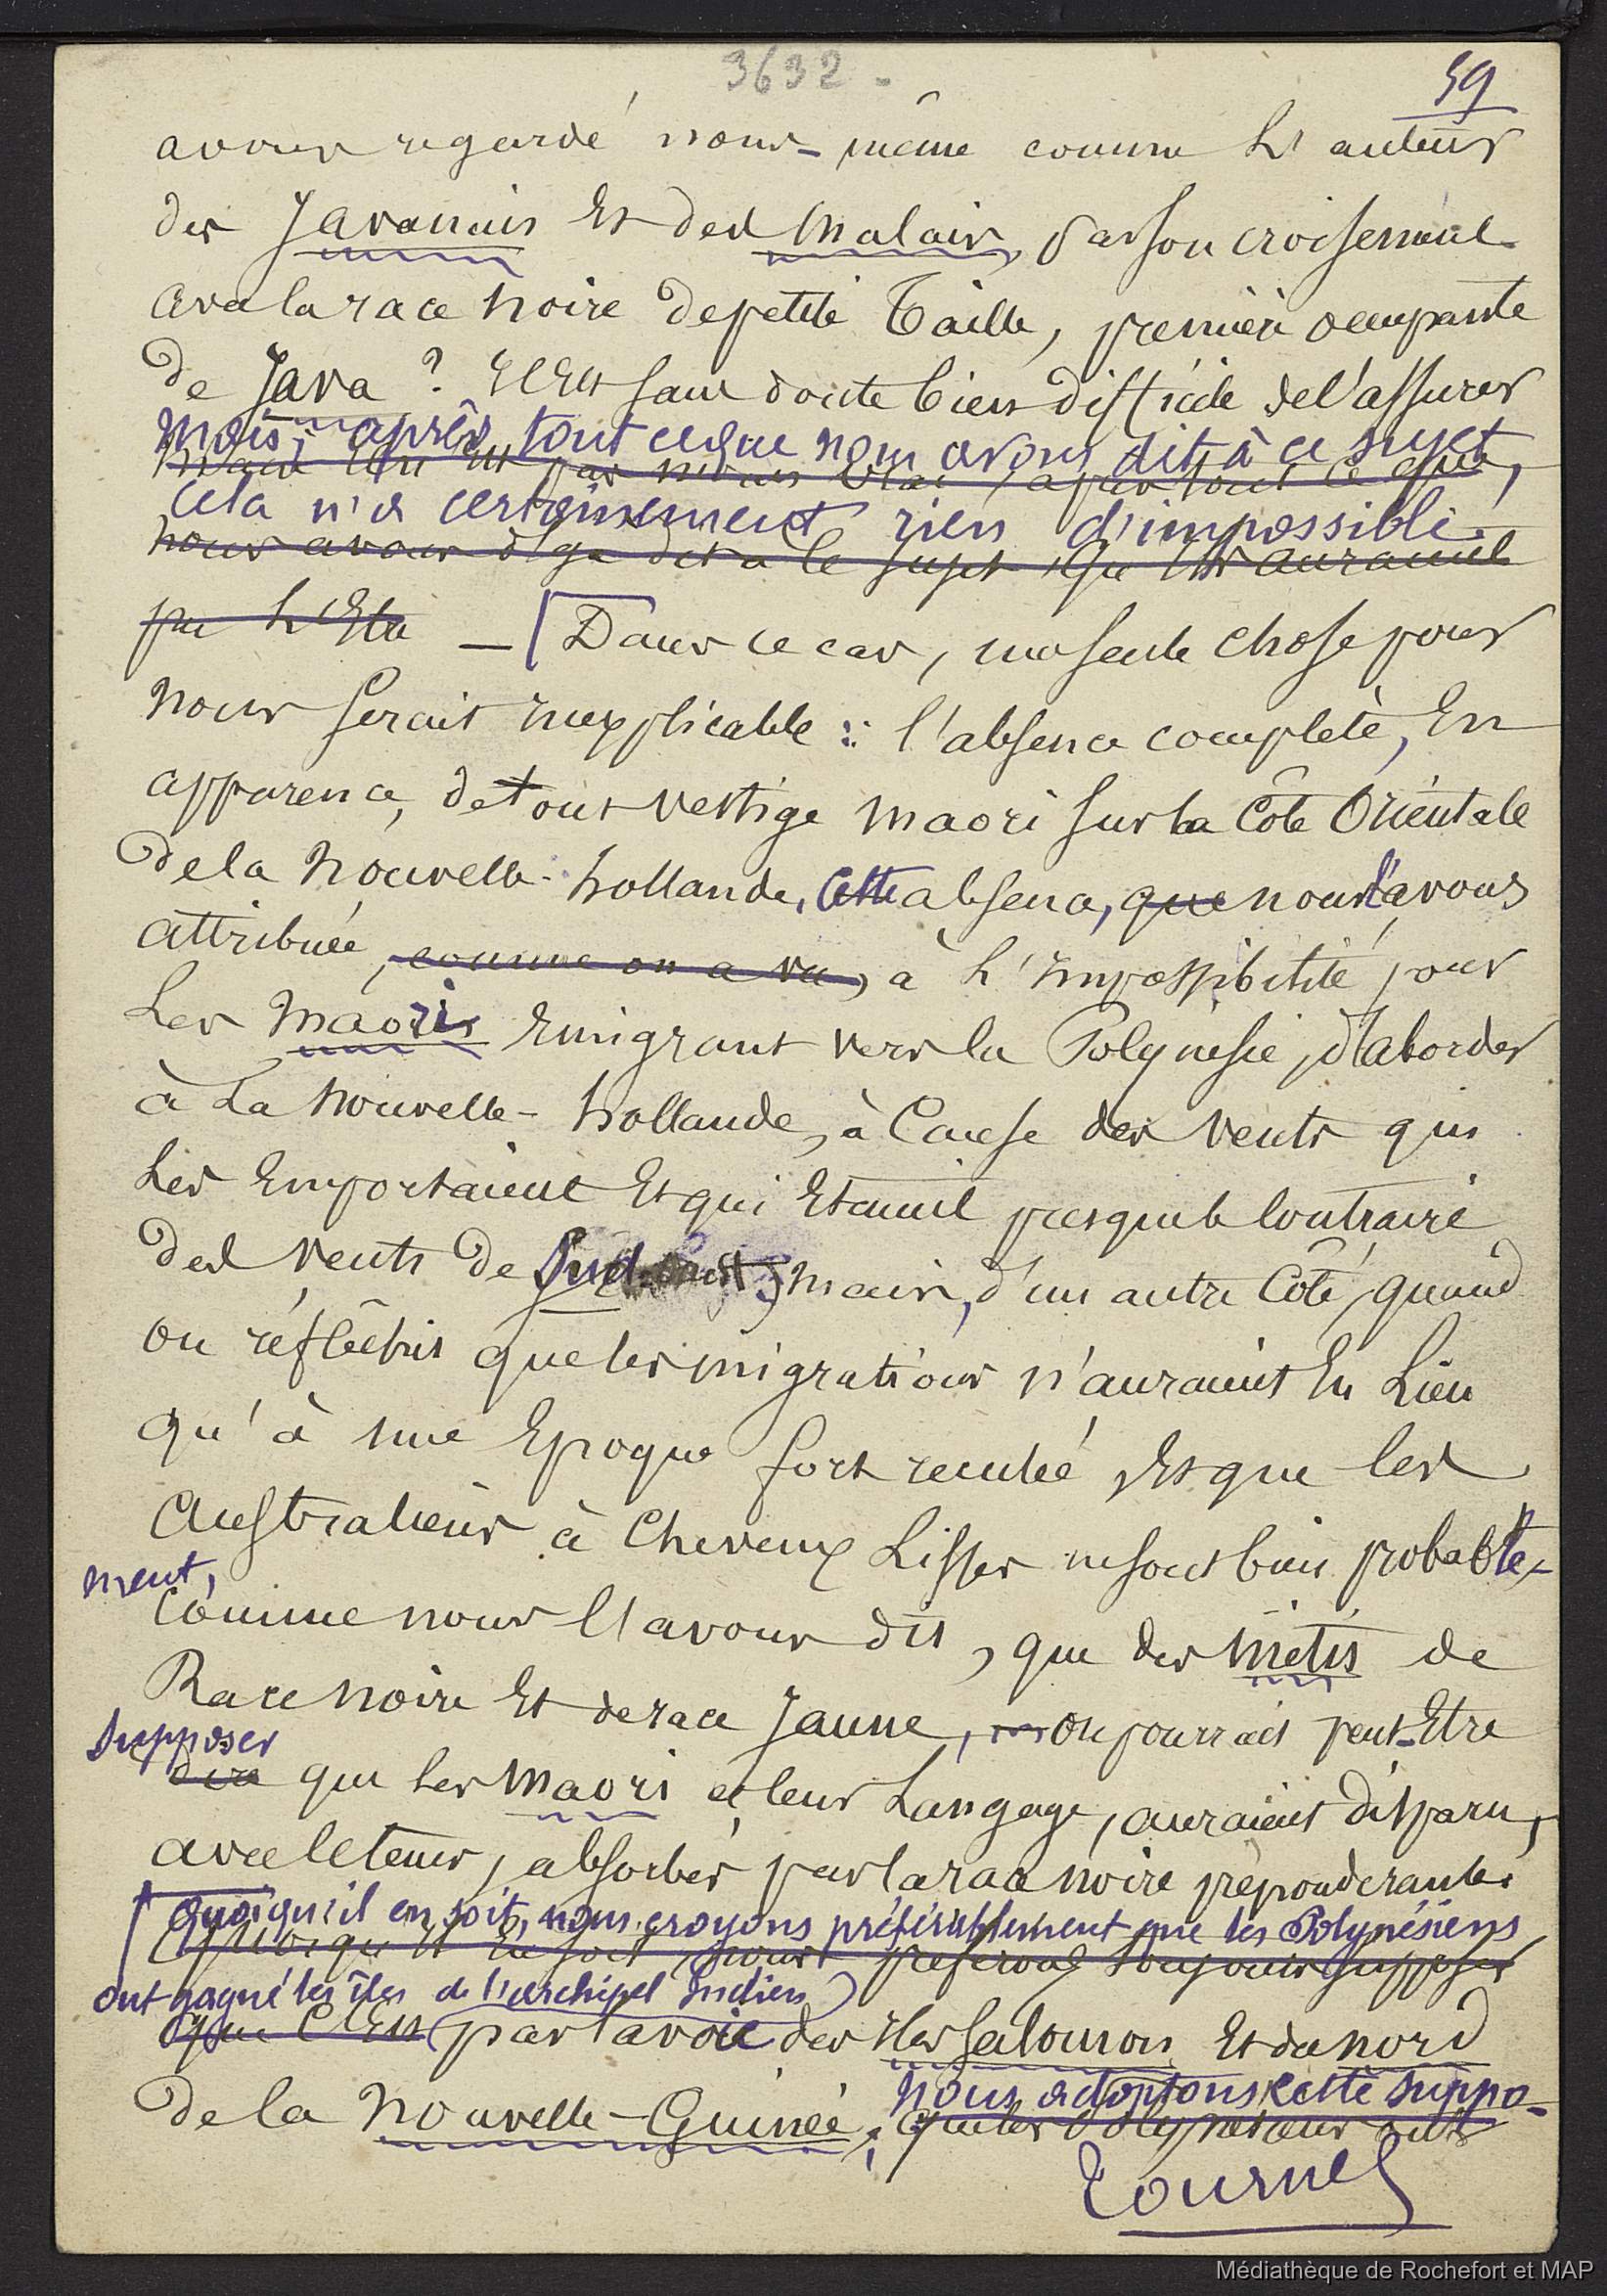 3632 -
59
avons regardé nous-même comme l'auteur
des Javanais et des Malais, par son croisement
avec la race noire de petite taille, première occupante
de Java ? Il est sans doute bien difficile de l'assurer
mais, après tout ce que nous avons dit à ce sujet,
mais il n'en est pas moins vrai, après tout ce que
cela n'a certainement rien d'impossible.
nous avons déjà dit à ce sujet, qu'ils auraient
pu l'Etre — [Dans ce cas, une seule chose pour
nous serait inexplicable : l'absence complète, en
apparence, de tout vestige maori sur la côte Orientale
de la Nouvelle-hollande, Cette absence, que nous l'avons
attribuée, comme on a vu, à l'impossibilité pour
les Maoris émigrant vers la Polynésie, d'aborder
à la Nouvelle-hollande, à cause des vents qui
les emportaient et qui étaient presque le contraire
des vents de Sud-Est; mais, d'un autre côté, quand
on réfléchit que les migrations n'auraient eu lieu
qu'à une Epoque fort reculée, et que les
Australiens à cheveux lisses ne sont bien probable-
ment,
comme nous l'avons dit, que des métis de
Race noire et de race Jaune, on pourrait peut-Etre
supposer
dire que les Maori et leur langage, auraient disparu,
avec le temps, absorbés par la race noire prépondérante.
quoiqu'il en soit, nous croyons préférablement que les Polynésiens
Quoiqu'il en soit, nous préférons toujours supposer
ont gagné les îles de l'archipel Indien
que c'est par la voie des Iles Salomon et du nord
nous adoptons cette suppo-
de la Nouvelle-Guinée, que les Polynésiens ont
Tournez
Médiathèque de Rochefort et MAP